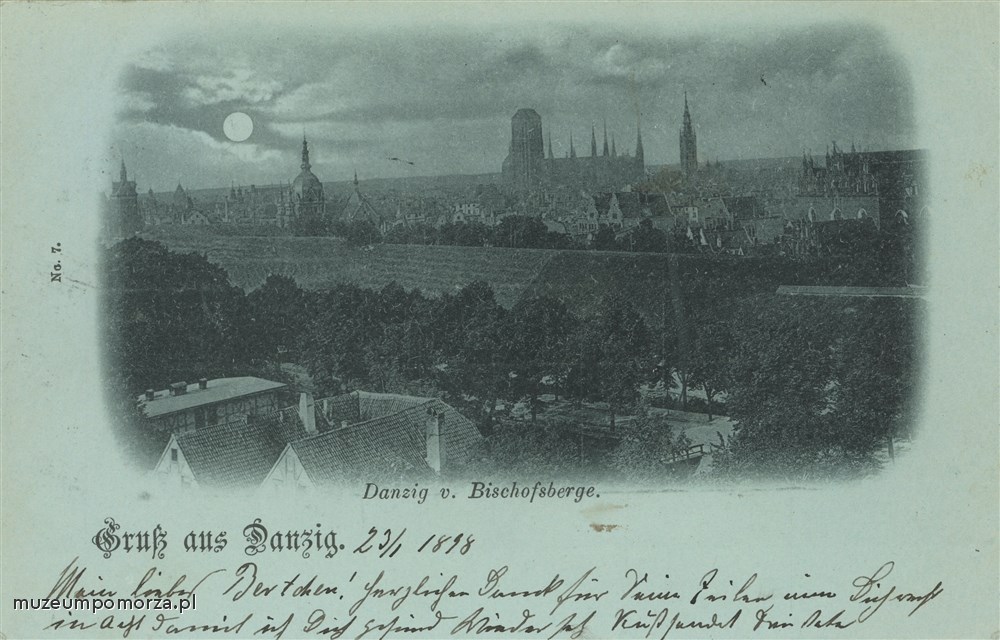 No. 7.
Danzig v. Bischofsberge.
Gruß aus Danzig. 23/1 1898
Mein lieber Bertchen! herzlichen Dank für Deine Zeilen nimm Dich recht
in Acht damit ich Dich gesund wieder seh Kußsendet Dein
muzeumpomorza.pl